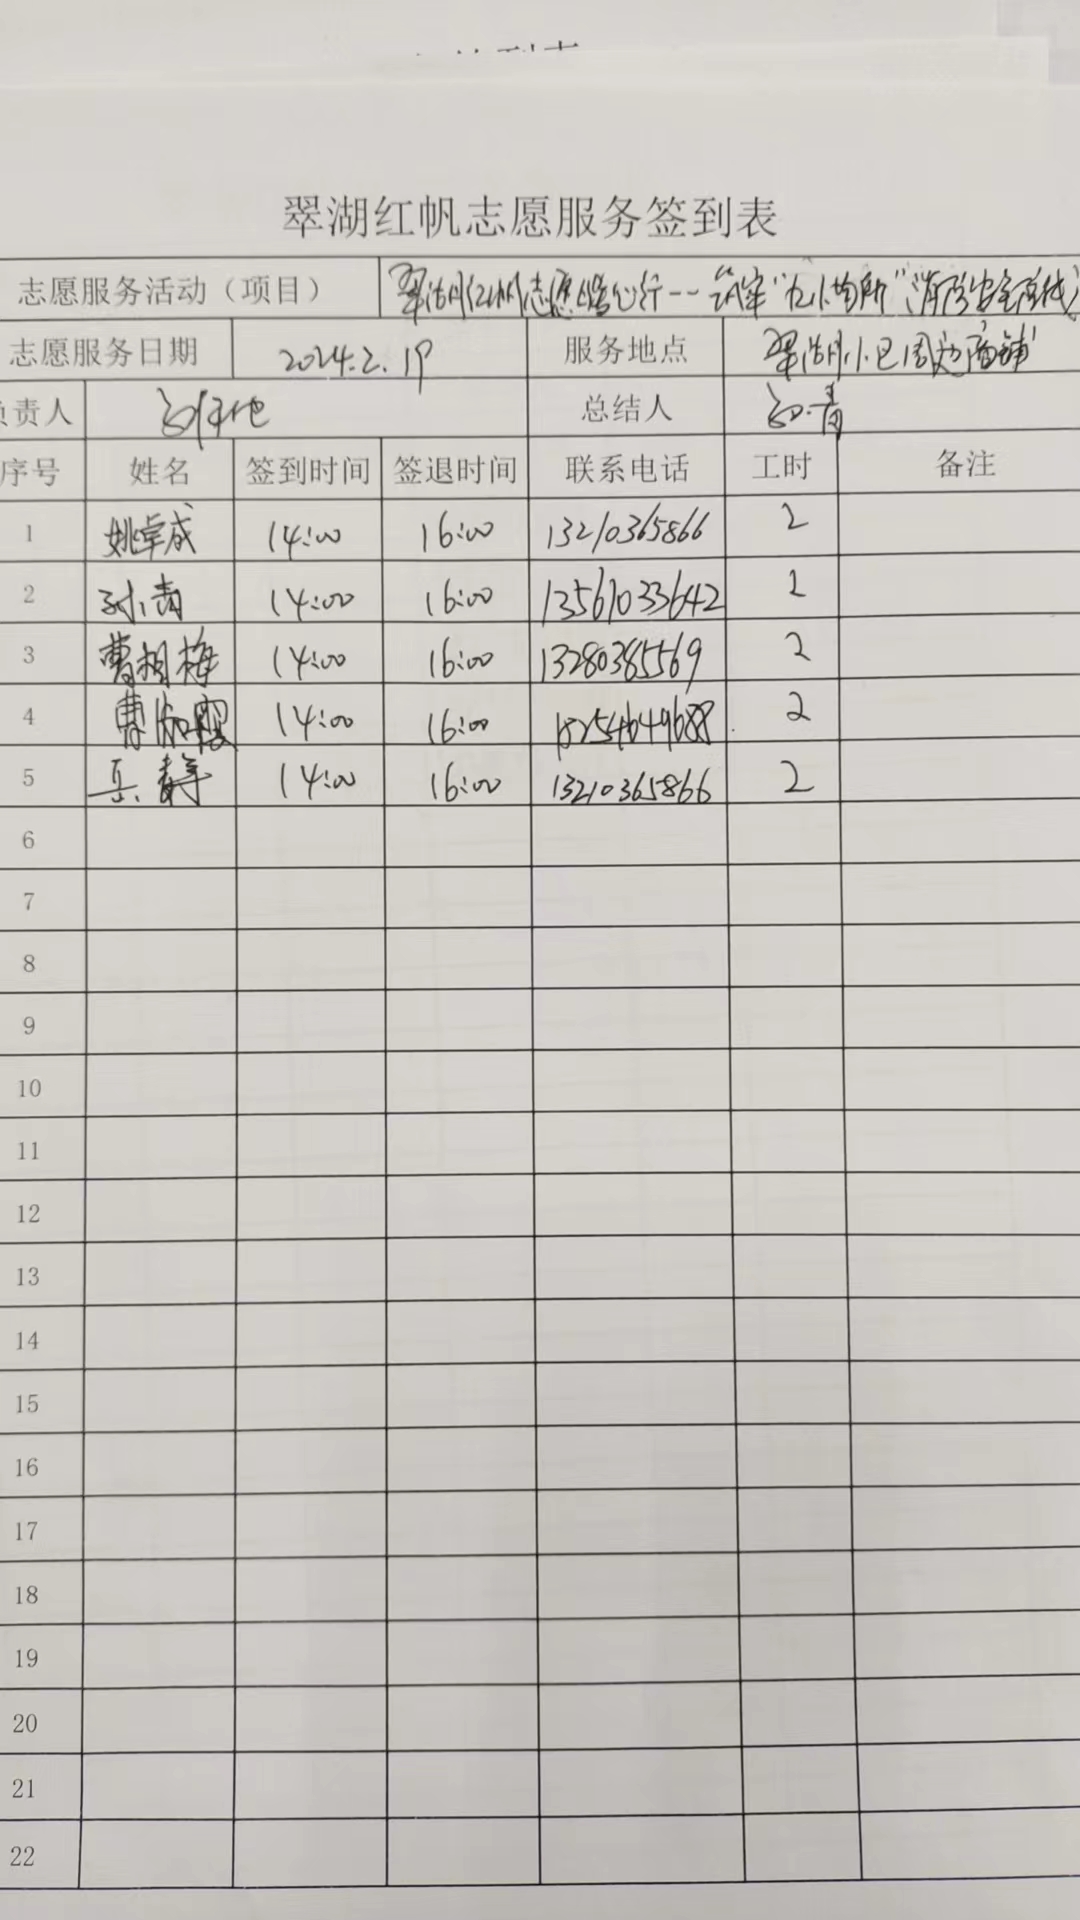 翠湖红帆志愿服务签到表
志愿服务活动（项目） 翠湖红帆志愿 心行--筑牢"九小场所"消防安全防线
志愿服务日期 2024.2.19 服务地点 翠湖小区周边商铺
负责人 总结人 青
序号 姓名 签到时间 签退时间 联系电话 工时 备注
1 姚卓成 14:00 16:00 13210365866 2
2 孙青 14:00 16:00 13561033642 2
3 曹相梅 14:00 16:00 13280385569 2
4 曹 14:00 16:00 18254649688 2
5 14:00 16:00 13210365866 2
6
7
8
9
10
11
12
13
14
15
16
17
18
19
20
21
22